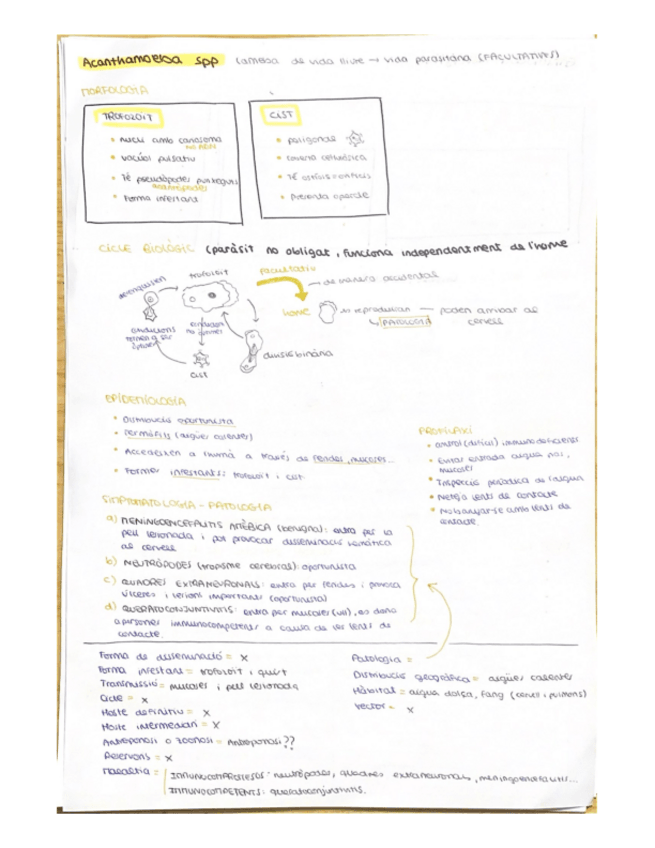 Acanthamoeba spp (ameba de vida lliure → vida parasitària (FACULTATIVES)
MORFOLOGIA
TROFOZOIT
• nucli amb cariosoma
• vacúol pulsatiu
• Té pseudòpodes punxeguts
acantòpodes
• Forma infestant
CIST
• poligonals
• coberta cel·lulòsica
• Presenta opercle
CICLE BIOLÒGIC (paràsit no obligat, funciona independentment de l'home
facultatiu
→ de manera accidental
trofozoit
desenquisten
condicions tornen a ser òptimes
condicions no òptimes
cist
divisió binària
home
es reprodueixen — poden arribar al cervell
↳ PATOLOGIA
EPIDEMIOLOGIA
• Distribució oportunista
• Termòfils (aigües calentes)
• Accedeixen a l'humà a través de ferides, mucoses...
• Formes infestants: trofozoit i cist.
PROFILAXI
• control (difícil) immunodeficients
• Evitar entrada aigua nas, mucoses
• Inspecció periòdica de l'aigua
• Neteja lents de contacte
• No banyar-se amb lents de contacte.
SIMPTOMATOLOGIA - PATOLOGIA
a) MENINGOENCEFALITIS AMÈBICA (benigna): entra per la
pell lesionada i pot provocar disseminació hemàtica
al cervell
b) NEURÒPODES (tropisme cerebral): oportunista
c) QUADRES EXTRANEURONALS: entra per ferides i provoca
úlceres i lesions importants (oportunista)
d) QUERATOCONJUNTIVITIS: entra per mucoses (ull), es dona
a persones immunocompetents a causa de les lents de
contacte.
Forma de disseminació = x
Forma infestant = trofozoit i quist
Transmissió = mucoses i pell lesionada
Cicle = x
Hoste definitiu = x
Hoste intermediari = x
Antroponosi o zoonosi = Antroponosi??
Reservoris = x
Malaltia = IMMUNOCOMPROMESOS: neuròpodes, quadres extraneuronals, meningoencefalitis...
IMMUNOCOMPETENTS: queratoconjuntivitis.
Patologia =
Distribució geogràfica = aigües calentes
Hàbitat = aigua dolça, fang (cervell i pulmons)
Vector = x